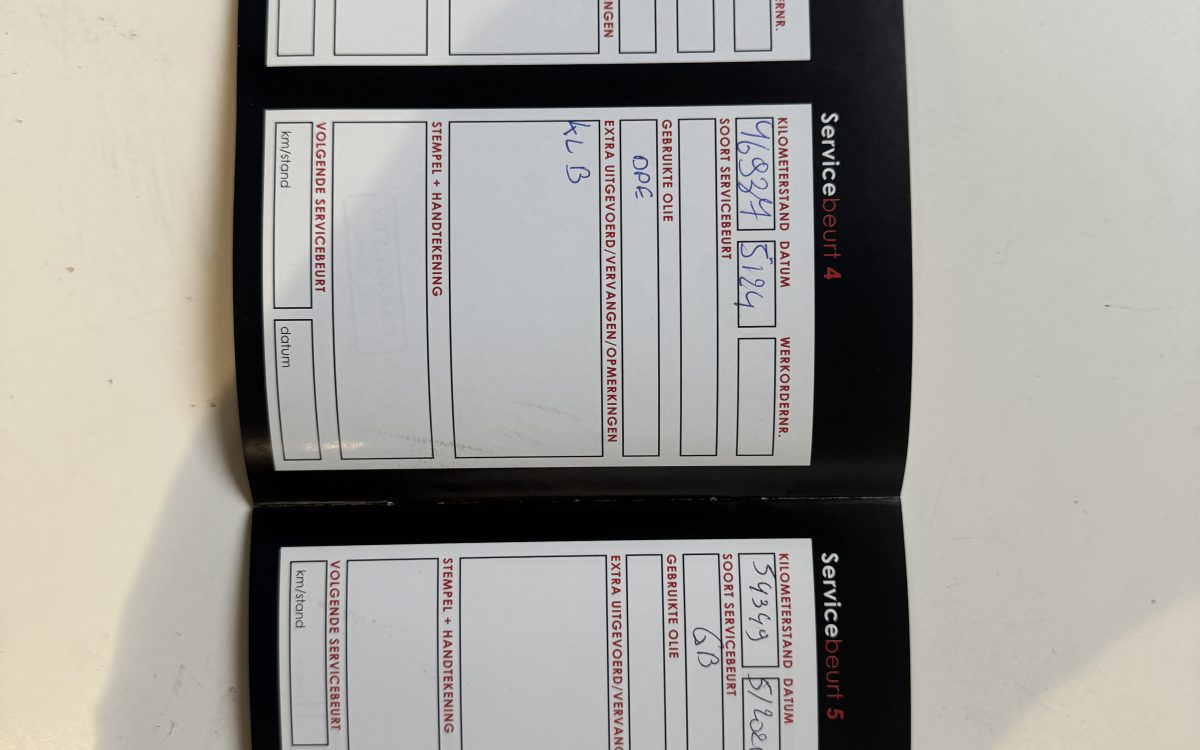 NGEN
ERNR.
Servicebeurt 4
KILOMETERSTAND DATUM WERKORDERNR.
46934 5/24
SOORT SERVICEBEURT
GEBRUIKTE OLIE
DPE
EXTRA UITGEVOERD/VERVANGEN/OPMERKINGEN
KL B
STEMPEL + HANDTEKENING
VOLGENDE SERVICEBEURT
km/stand datum
Servicebeurt 5
KILOMETERSTAND DATUM
59349
SOORT SERVICEBEURT
GB
GEBRUIKTE OLIE
EXTRA UITGEVOERD/VERVANG
STEMPEL + HANDTEKENING
VOLGENDE SERVICEBEURT
km/stand